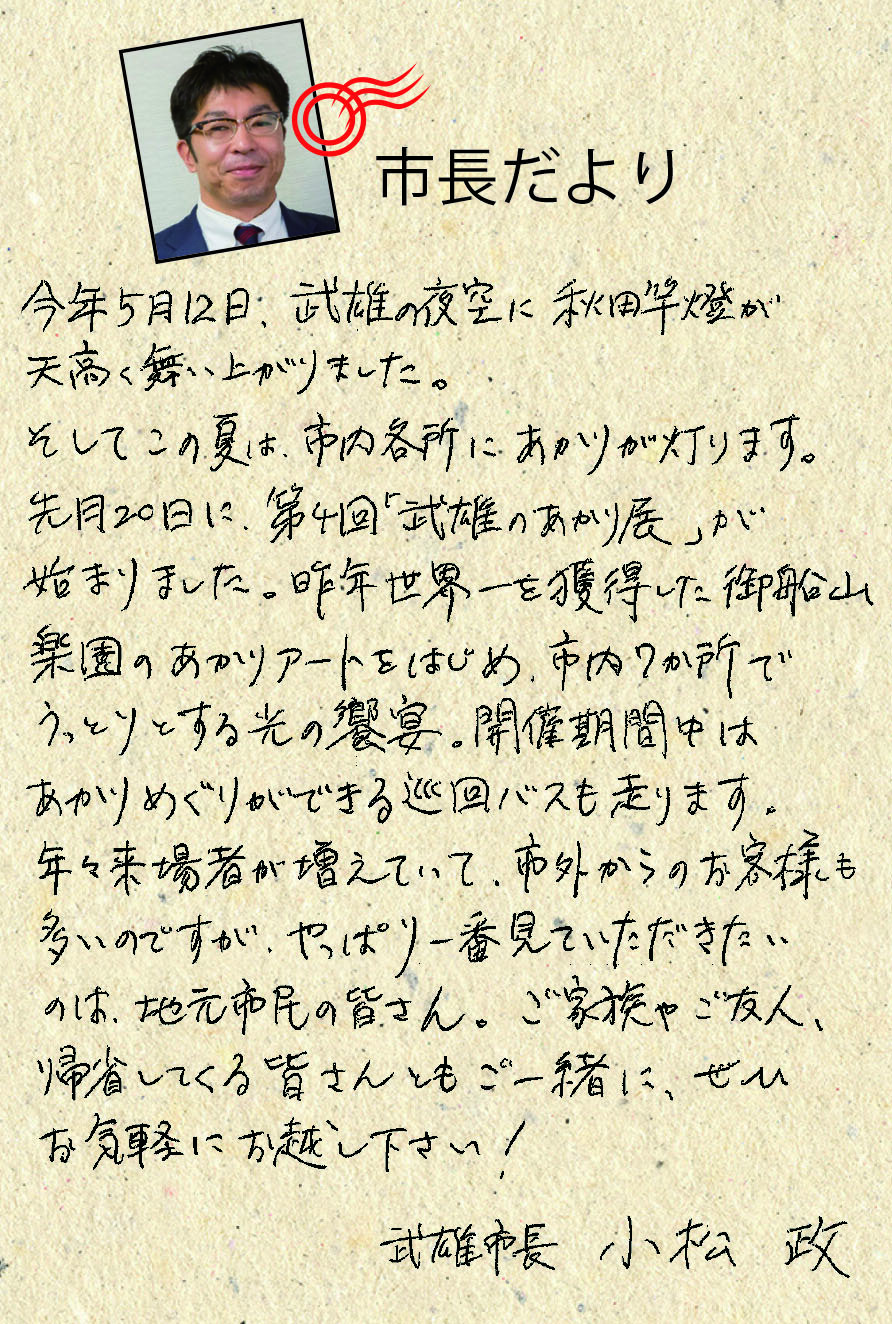 市長だより
今年5月12日、武雄の夜空に秋田竿燈が
天高く舞い上がりました。
そしてこの夏は、市内各所にあかりが灯ります。
先月20日に、第4回「武雄のあかり展」が
始まりました。昨年世界一を獲得した御船山
楽園のあかりアートをはじめ、市内7か所で
うっとりとする光の饗宴。開催期間中は
あかりめぐりができる巡回バスも走ります。
年々来場者が増えていて、市外からのお客様も
多いのですが、やっぱり一番見ていただきたい
のは、地元市民の皆さん。ご家族やご友人、
帰省してくる皆さんともご一緒に、ぜひ
お気軽にお越し下さい!
武雄市長 小松 政